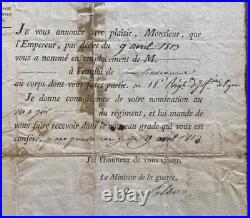 JE vous annonce avec plaisir, Monsieur, que
l'Empereur, par décret du 9 avril 1813
vous a nommé en remplacement de M.
à l'emploi de
au corps dont vous faites partie. au 18e Regt d'Infrie de ligne
Je donne connaissance de votre nomination au
major du régiment, et lui mande de
vous faire recevoir dans le nouveau grade qui vous est
conféré, 9 avril 1813
J'ai l'honneur de vous saluer.
Le Ministre de la guerre,